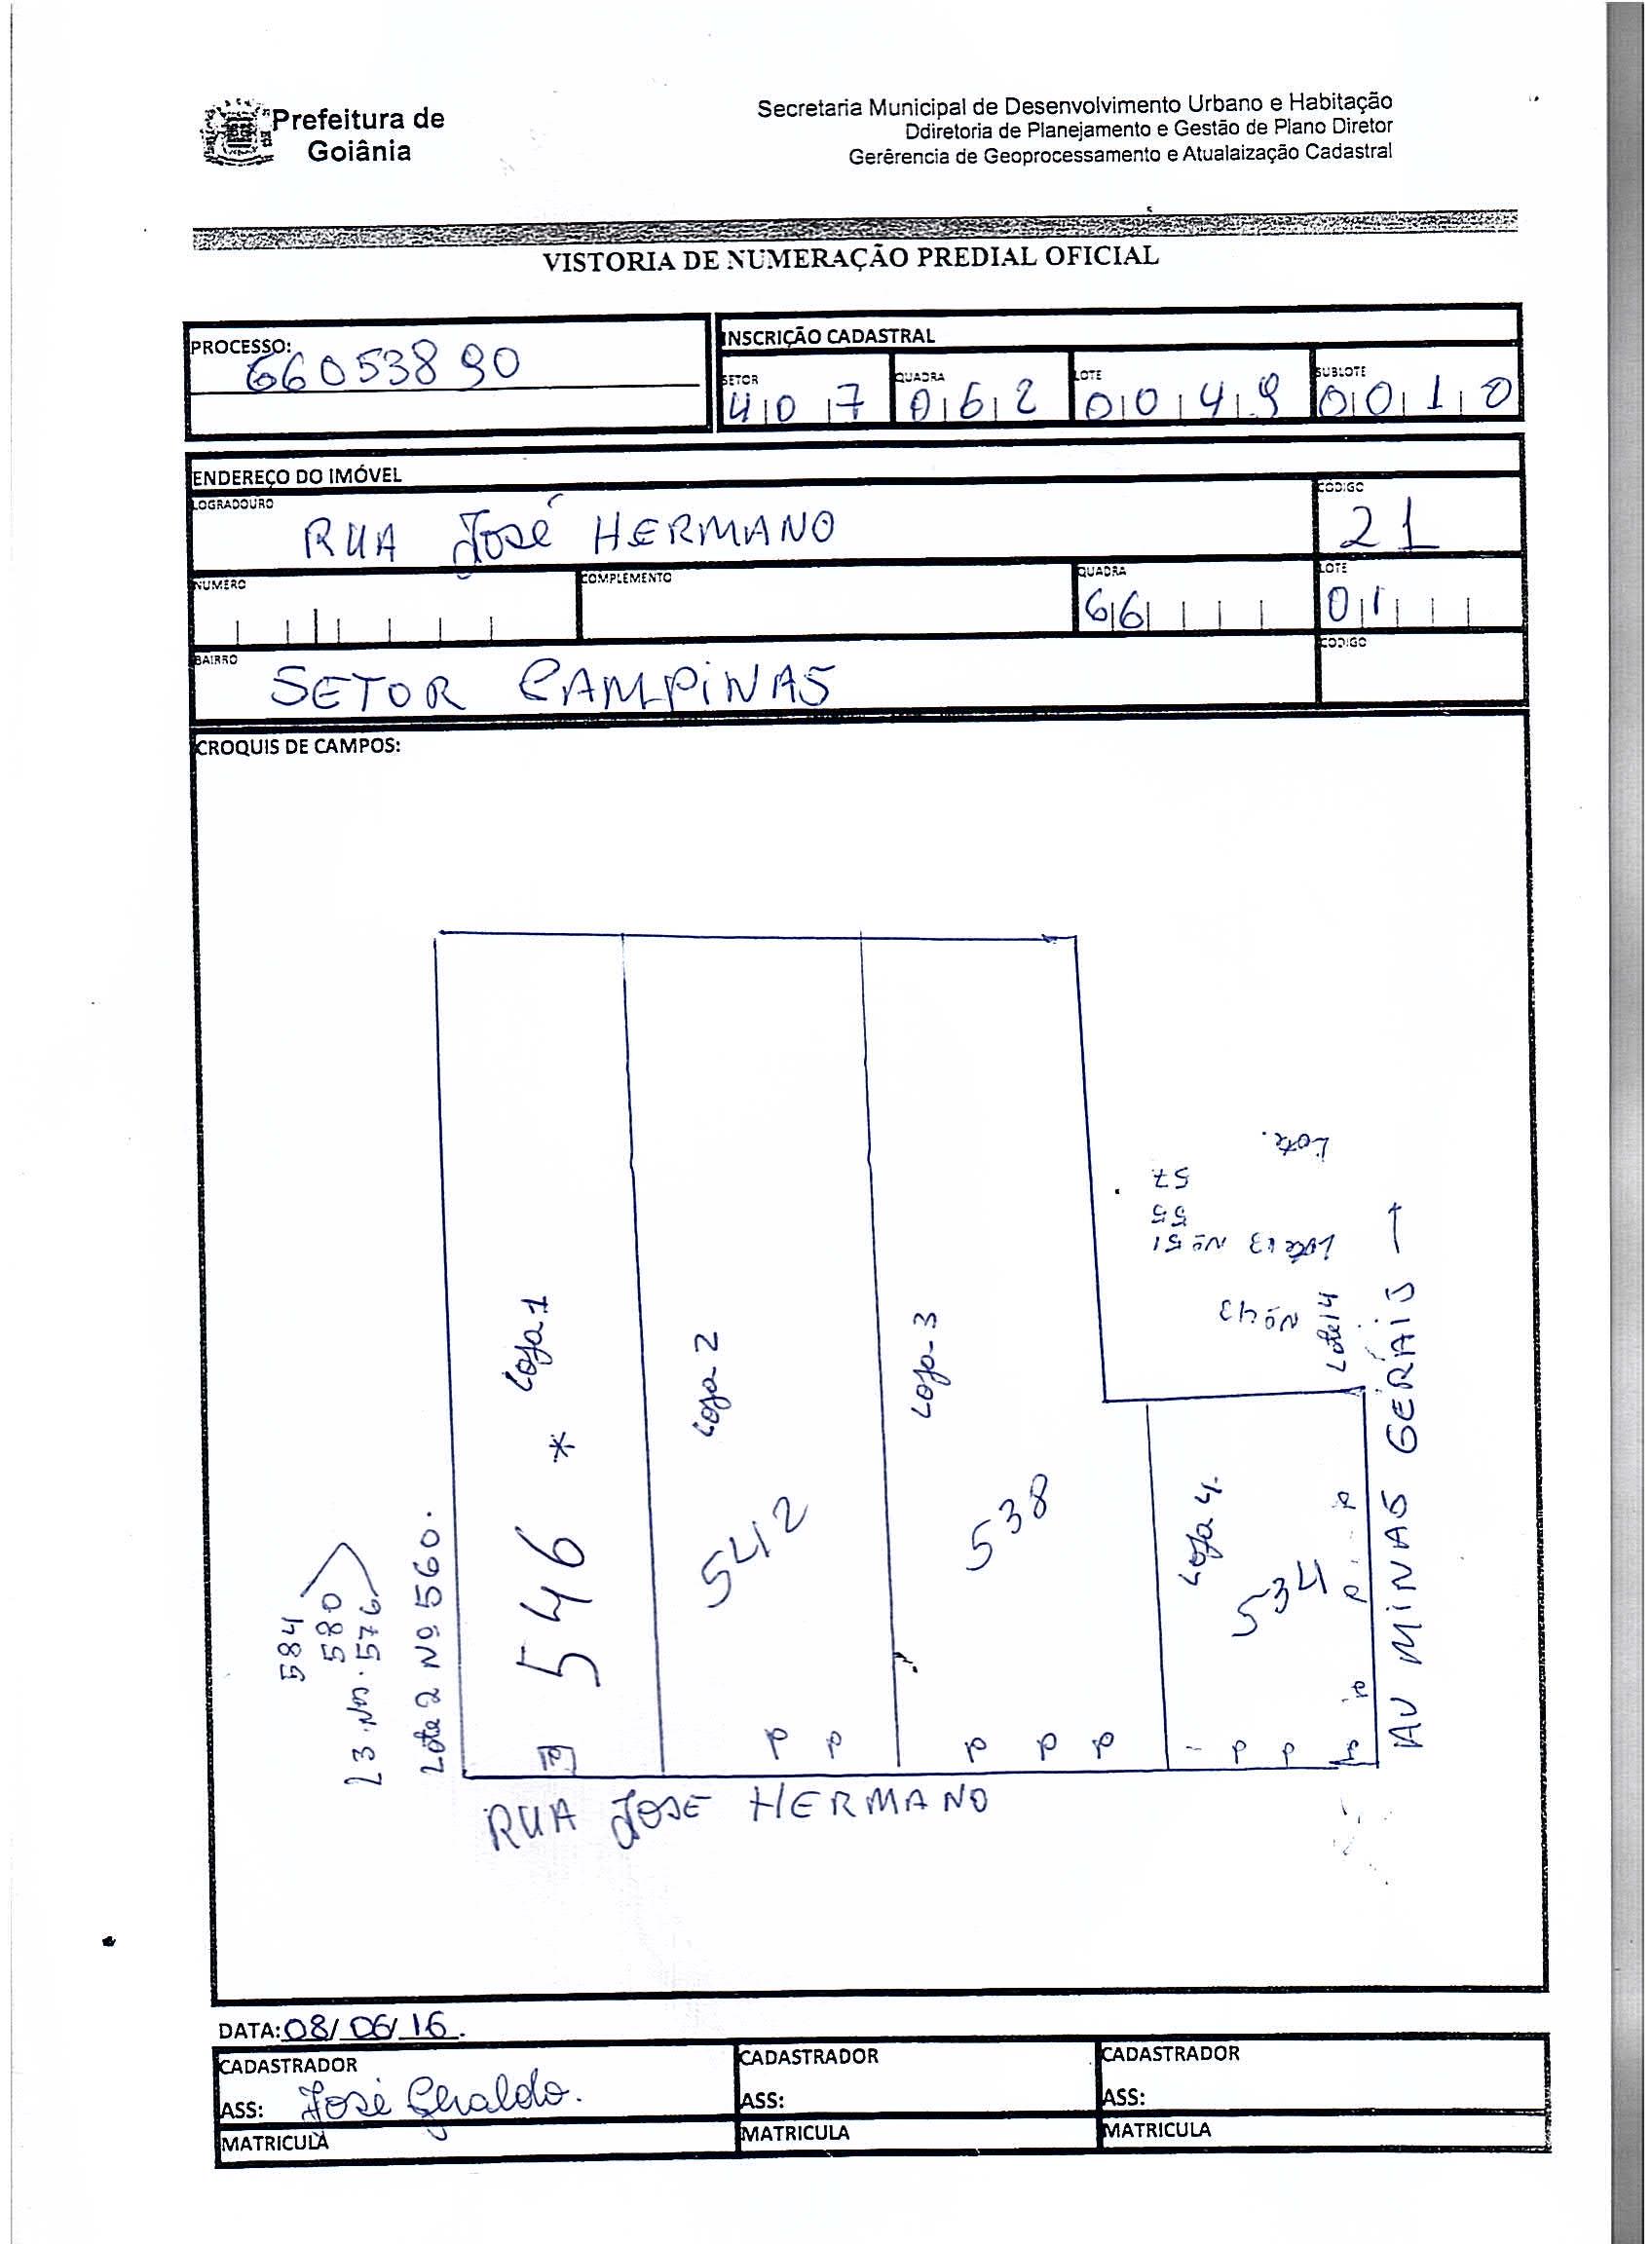 Prefeitura de
Goiânia
Secretaria Municipal de Desenvolvimento Urbano e Habitação
Ddiretoria de Planejamento e Gestão de Plano Diretor
Gerêrencia de Geoprocessamento e Atualaização Cadastral
VISTORIA DE NUMERAÇÃO PREDIAL OFICIAL
PROCESSO:
66053890
INSCRIÇÃO CADASTRAL
SETOR QUADRA LOTE SUBLOTE
407 062 0049 0010
ENDEREÇO DO IMÓVEL
LOGRADOURO CODIGO
RUA José HERMANO 21
NUMERO COMPLEMENTO QUADRA LOTE
66 01
BAIRRO CODIGO
SETOR CAMPINAS
CROQUIS DE CAMPOS:
Lote.
57
55
Lote 13 Nº 51
Nº 43
Lote 14
Loja 1
Loja 2
Loja 3
Loja 4.
546 *
542
538
534
584
580
L3 Nos. 576
Lote 2 Nº 560.
AV MINAS GERAIS
P P P P
P P P P P P P P
RUA JOSE HERMANO
DATA: 08/06/16.
CADASTRADOR CADASTRADOR CADASTRADOR
ASS: José Geraldo. ASS: ASS:
MATRICULA MATRICULA MATRICULA